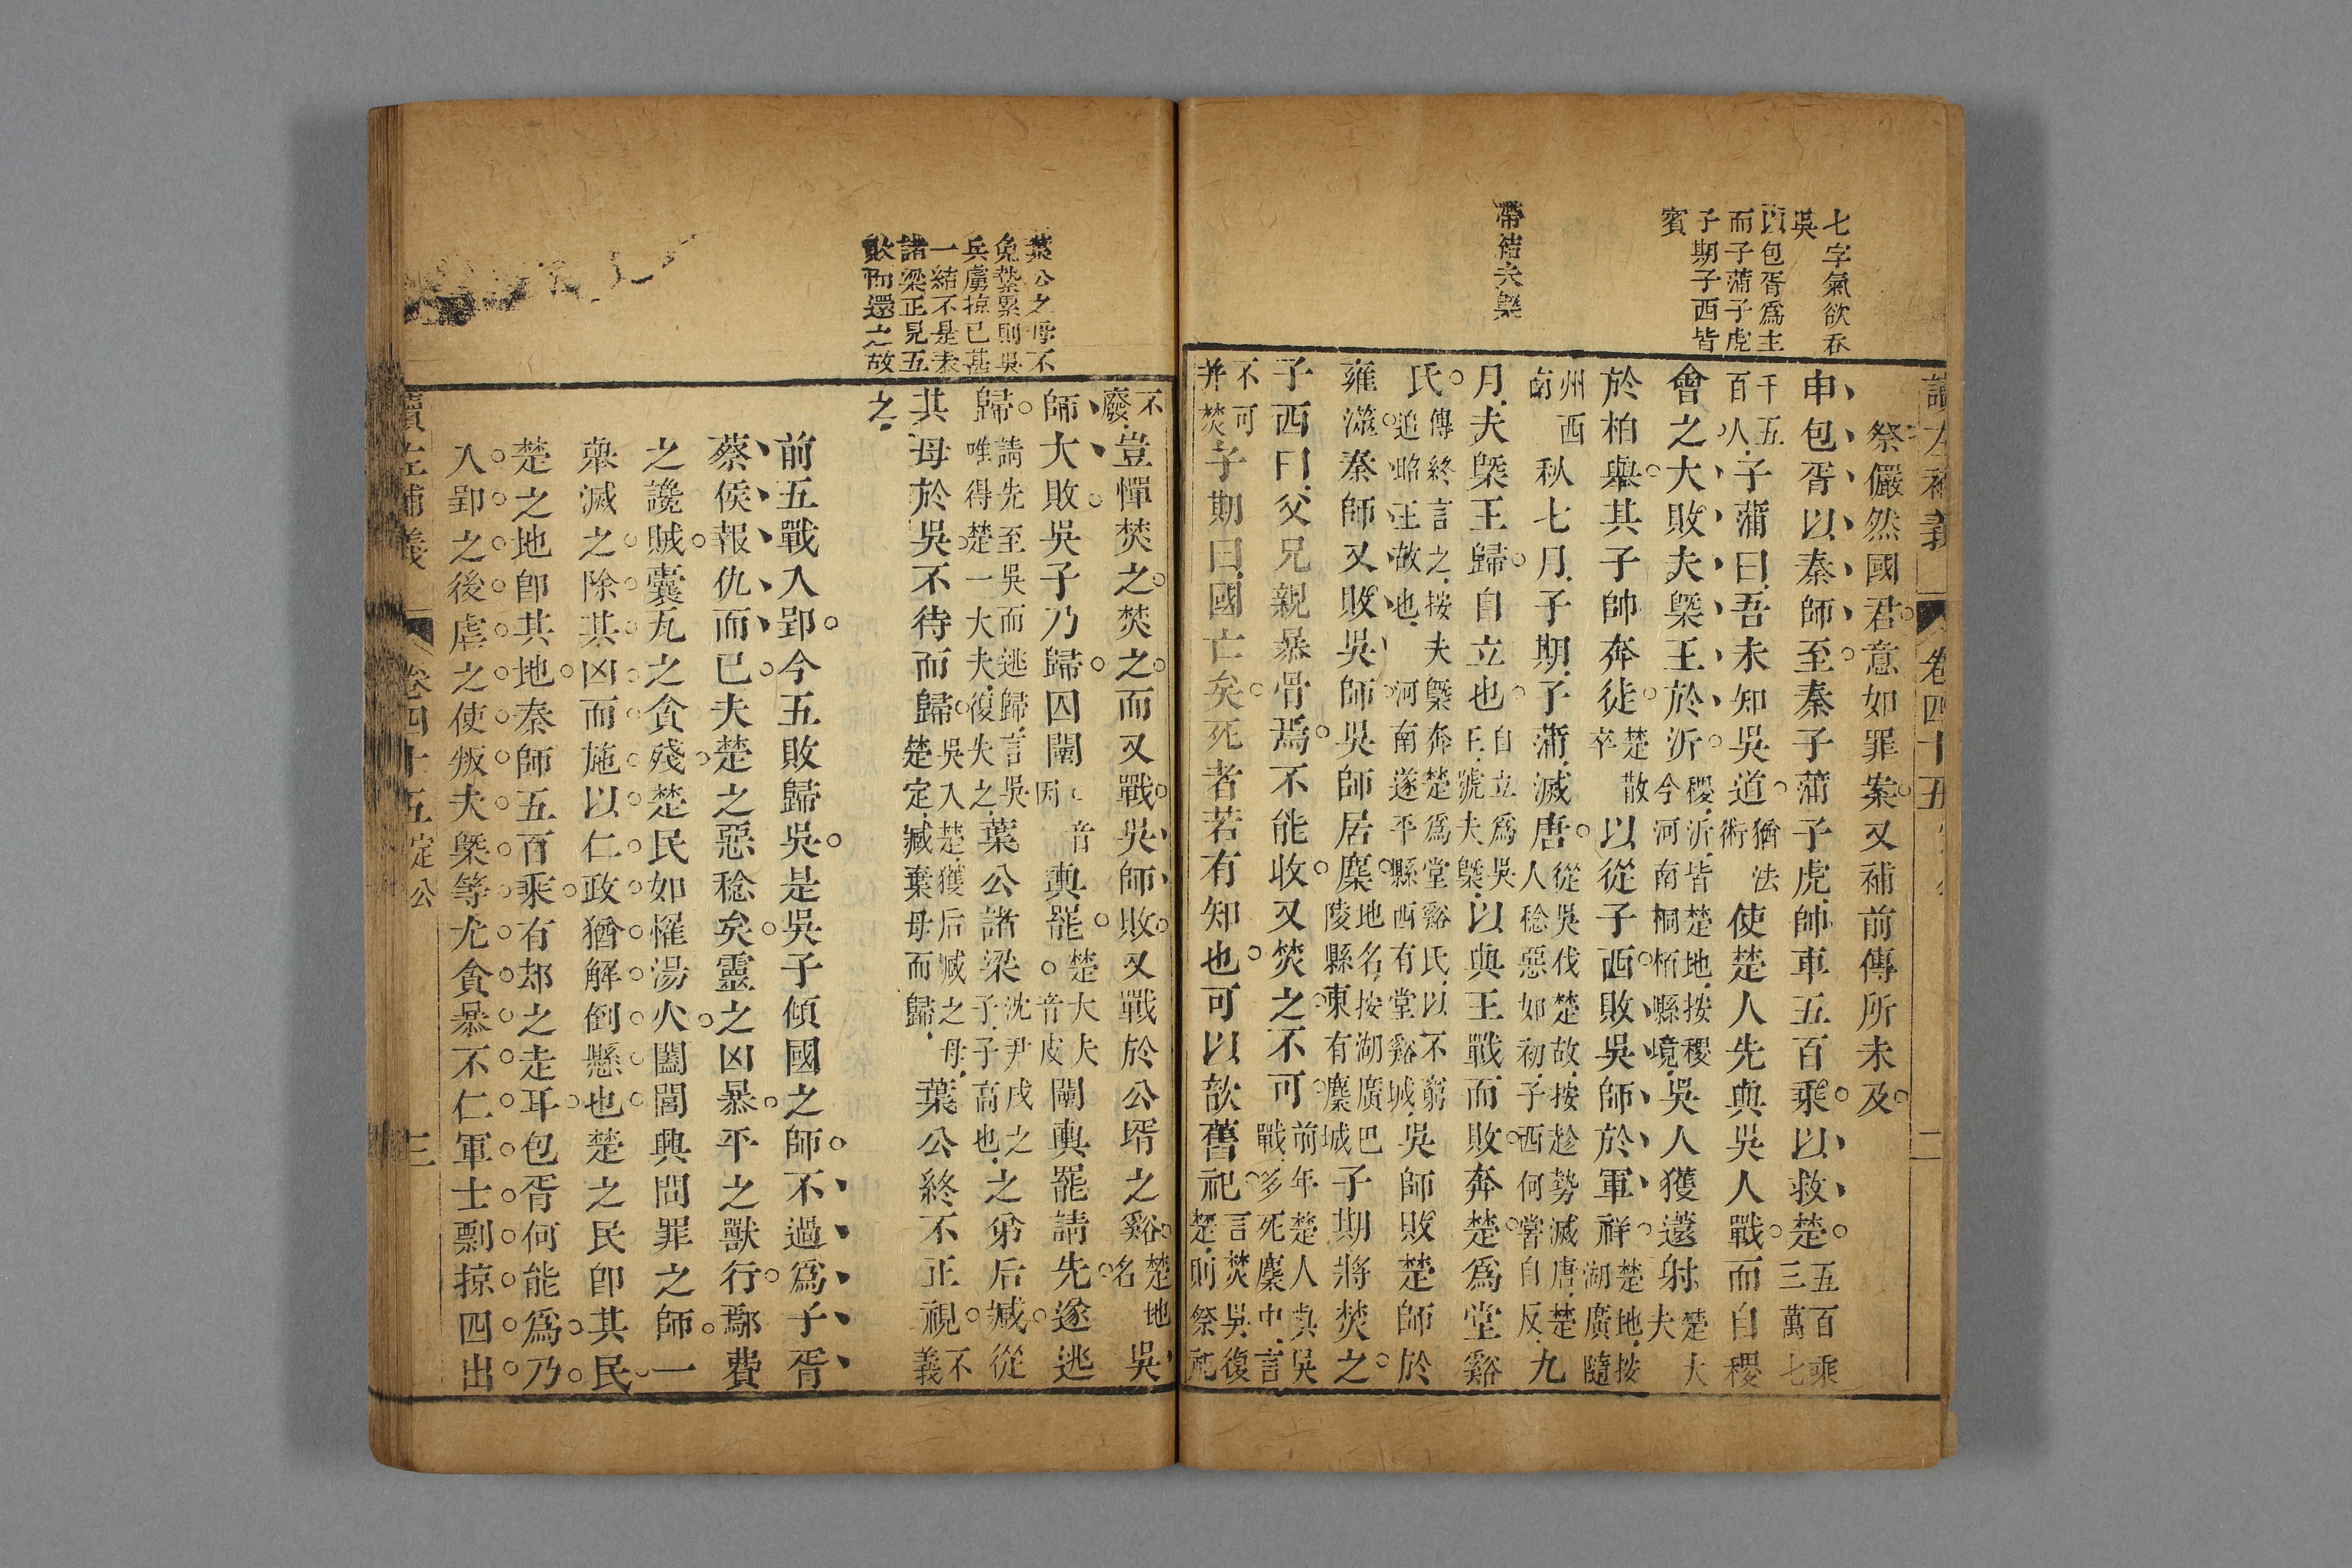 讀左補義 卷四十五 二
七字氣欲吞
吳
以包胥爲主
而子蒲子虎
子期子西皆
賓
帶結夫槩
祭儼然國君意如罪案又補前傳所未及
申包胥以秦師至秦子蒲子虎帥車五百乘以救楚五百乘三萬七
千五百人子蒲曰吾未知吳道猶法術使楚人先與吳人戰而自稷
會之大敗夫槩王於沂稷沂皆楚地按稷今河南桐栢縣境吳人獲薳射楚大夫
於柏舉其子帥奔徒楚散卒以從子西敗吳師於軍祥楚地按湖廣隨
州西南秋七月子期子蒲滅唐從吳伐楚故按趁勢滅唐楚人稔惡如初子西何嘗自反九
月夫槩王歸自立也自立爲吳王號夫槩以與王戰而敗奔楚爲堂谿
氏傳終言之按夫槩奔楚爲堂谿氏以不窮追昭王故也河南遂平縣西有堂谿城吳師敗楚師於
雍澨秦師又敗吳師吳師居麇地名按湖廣巴陵縣東有麇城子期將焚之
子西曰父兄親暴骨焉不能收又焚之不可前年楚人與吳戰多死麇中言
不可并焚子期曰國亡矣死者若有知也可以歆舊祀言焚吳復楚則祭祀
葉公之母不
免縶纍則吳
兵虜掠已甚
一結不是表
諸梁正見五
敗而還之故
不廢豈憚焚之焚之而又戰吳師敗又戰於公壻之谿楚地名吳
師大敗吳子乃歸囚闉因音輿罷楚大夫音皮闉輿罷請先遂逃
歸請先至吳而逃歸言吳唯得楚一大夫復失之葉公諸梁沈尹戌之子子高也之弟后臧從
其母於吳不待而歸吳入楚獲后臧之母楚定臧棄母而歸葉公終不正視不義
之
前五戰入郢今五敗歸吳是吳子傾國之師不過爲子胥
蔡侯報仇而已夫楚之惡稔矣靈之凶暴平之獸行鄢費
之讒賊囊瓦之貪殘楚民如罹湯火闔閭興問罪之師一
舉滅之除其凶而施以仁政猶解倒懸也楚之民卽其民
楚之地卽其地秦師五百乘有却之走耳包胥何能爲乃
入郢之後虐之使叛夫槩等尤貪暴不仁軍士剽掠四出
讀左補義 卷四十五 定公 三